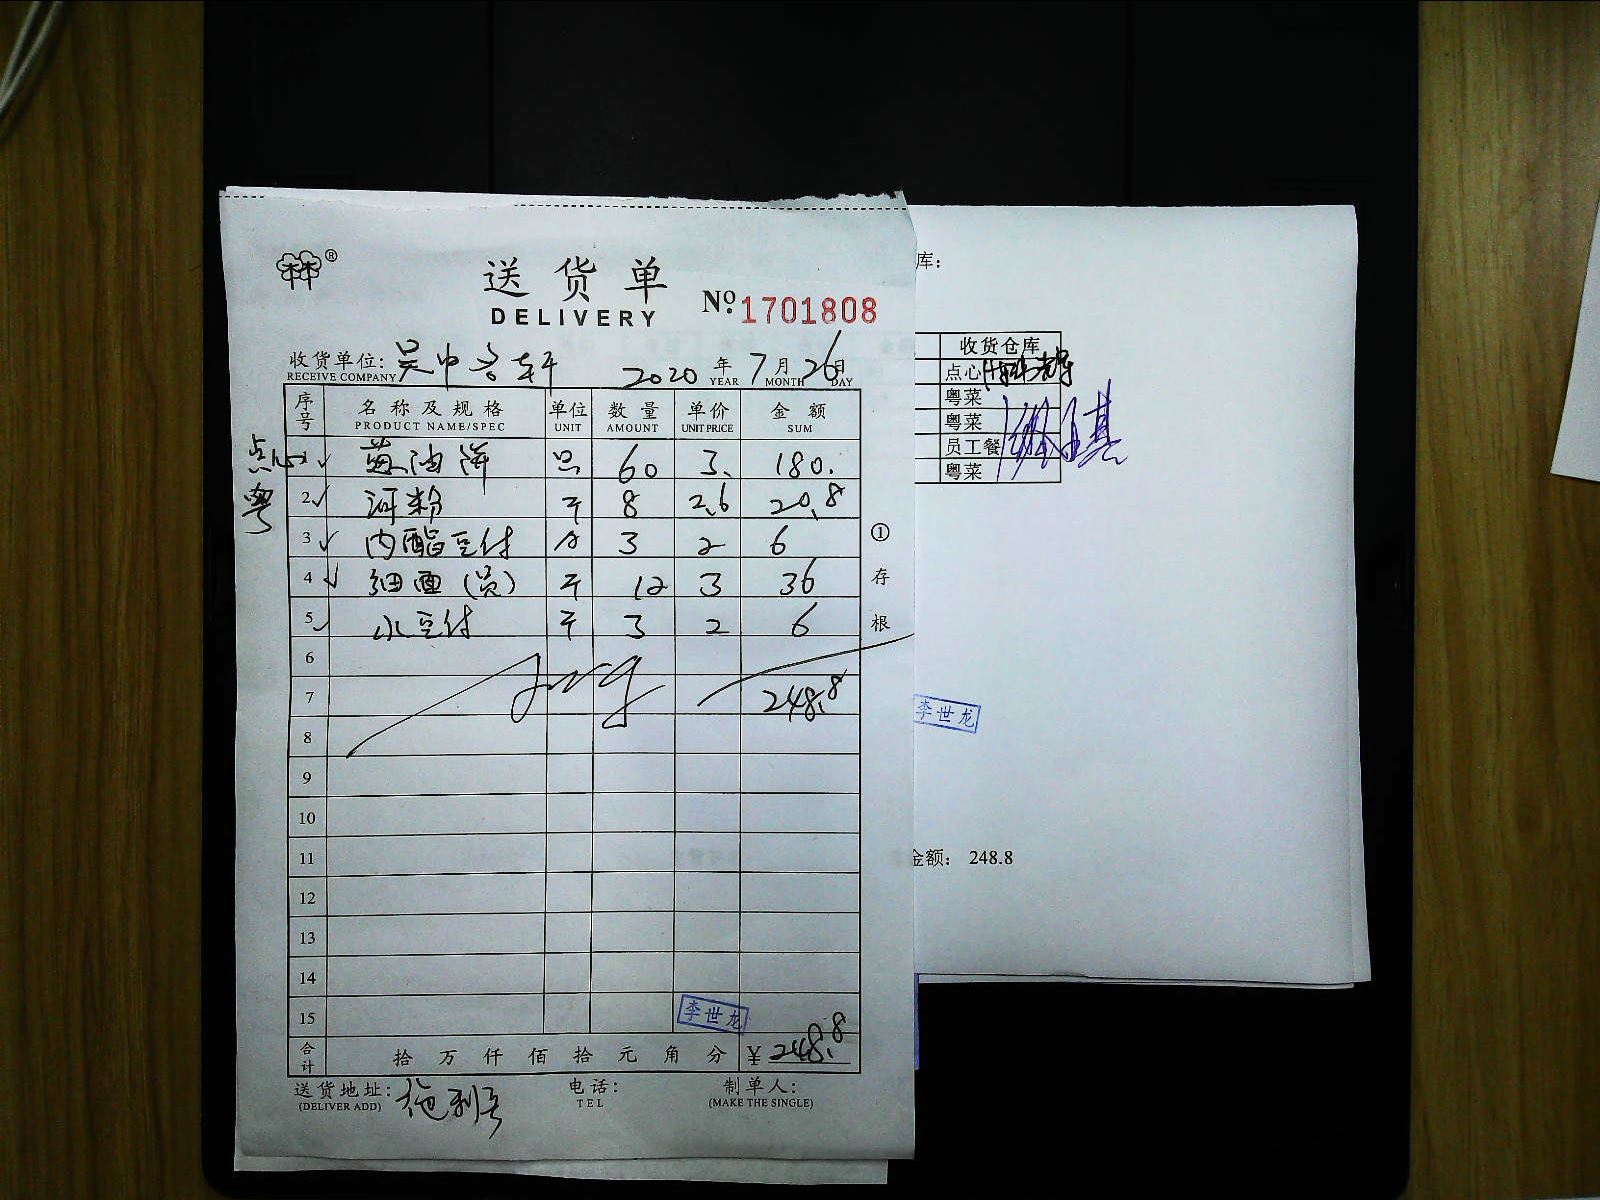 林®
送货单
DELIVERY
No. 1701808
收货单位: 吴中
RECEIVE COMPANY
2020 年 7 月 26 日
YEAR MONTH DAY
序号 名称及规格 单位 数量 单价 金额
PRODUCT NAME/SPEC UNIT AMOUNT UNIT PRICE SUM
点心 1 葱油饼 只 60 3. 180.
粤 2 河粉 斤 8 2.6 20.8
3 内酯豆付 3 2 6
4 细面(员) 斤 12 3 36
5 水豆付 斤 3 2 6
6
7 248.8
8
9
10
11
12
13
14
15
李世龙
合计 拾 万 仟 佰 拾 元 角 分 ¥ 248.8
送货地址: 电话: 制单人:
(DELIVER ADD) TEL (MAKE THE SINGLE)
①存根
库:
收货仓库
点心
粤菜
粤菜
员工餐
粤菜
李世龙
金额: 248.8